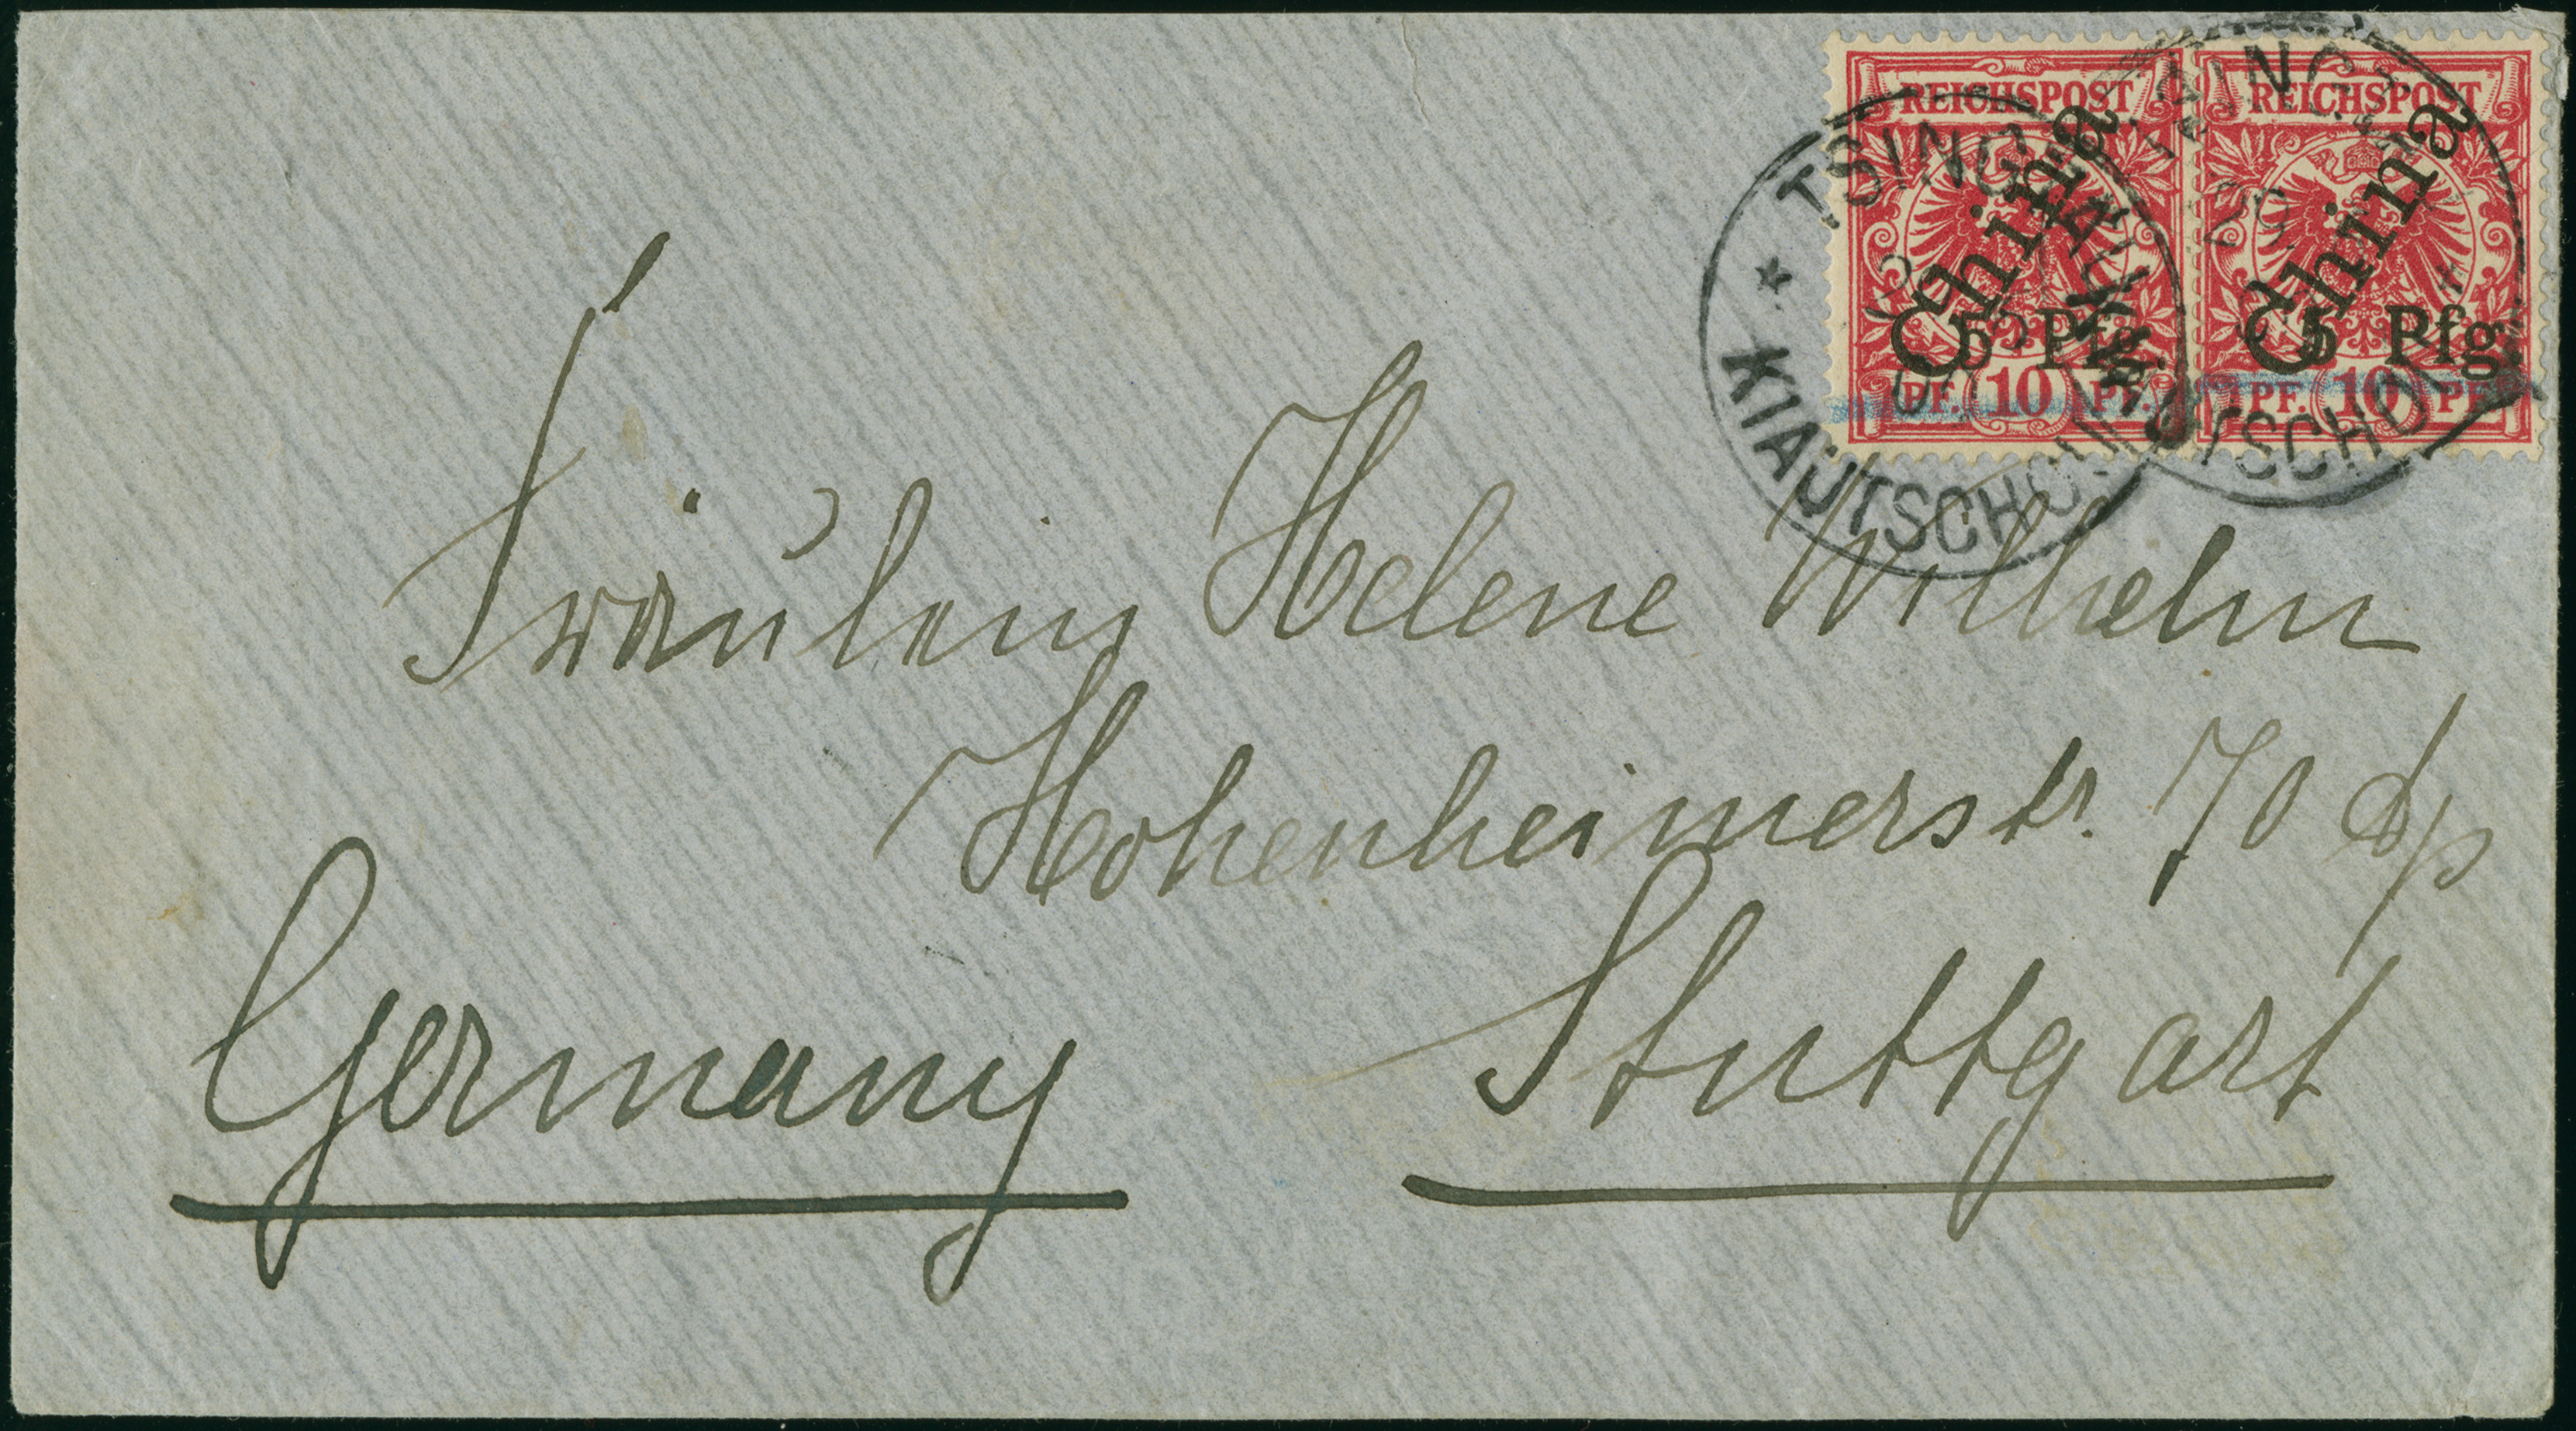 REICHSPOST REICHSPOST
China China
5 Pfg. 5 Pfg.
PF. 10 PF. PF. 10 PF.
TSINGTAU
KIAUTSCHOU
TSINGTAU
KIAUTSCHOU
Fräulein Helene Wilhelm
Hohenheimerstr. 70
Stuttgart
Germany